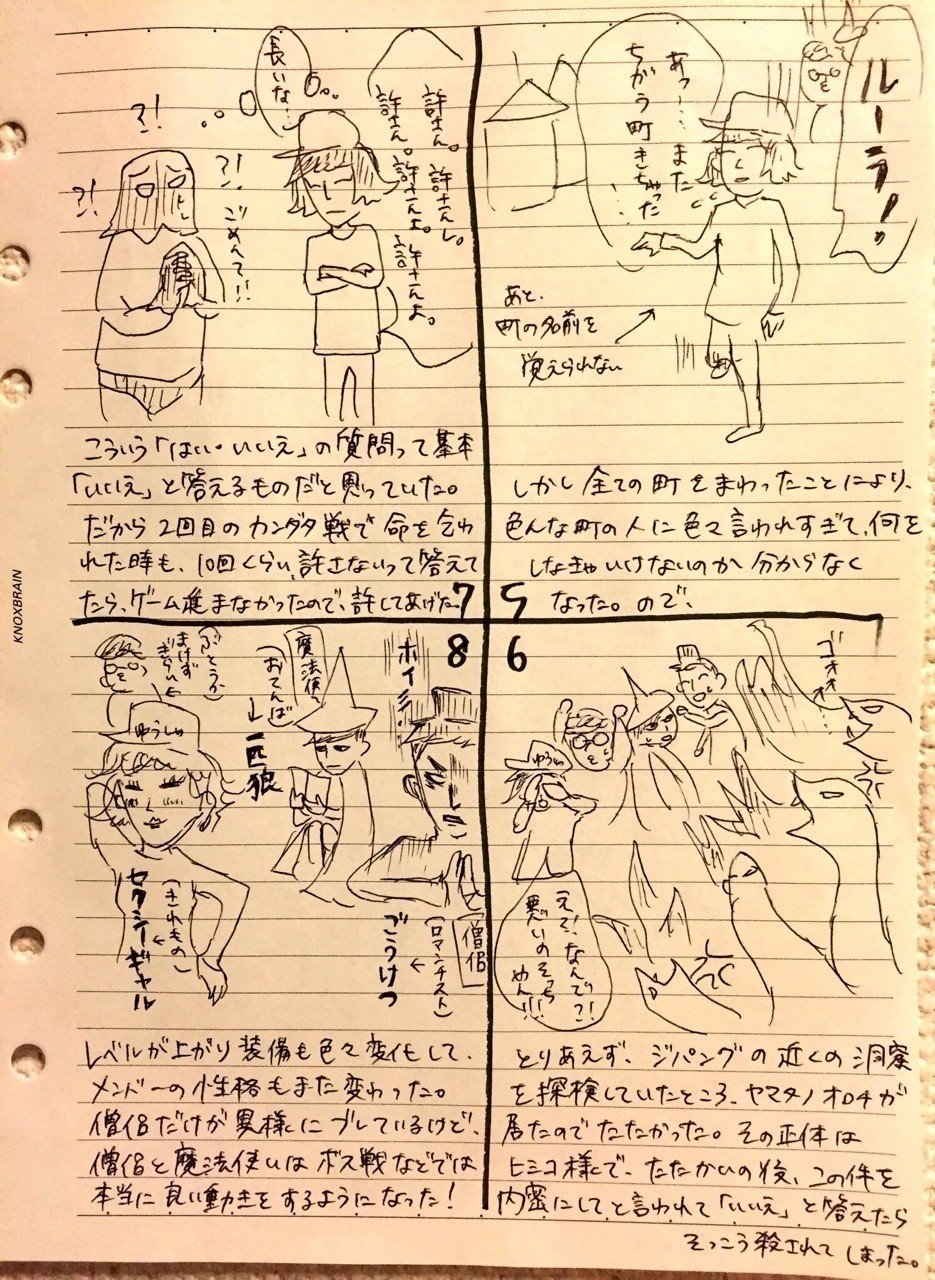 ルーラ!
あっ…また
ちがう町きちゃった
……
あと、
町の名前を
覚えられない
しかし全ての町をまわったことにより、
色んな町の人に色々言われすぎて、何を
しなきゃいけないのか分からなく
なった。ので、
5
6
ゴォォ
ゆうしゃ
(えぇ!なんで?!
悪いのそっち
やん!!!
とりあえず、ジパングの近くの洞窟
を探検していたところ、ヤマタノオロチが
居たのでたたかった。その正体は
ヒミコ様で、たたかいの後、この件を
内密にしてと言われて「いいえ」と答えたら
そっこう殺されてしまった。
許さん。許さんし。
許さん。許さんよ。
許さんよ。
長いな…
?!
?!
?!
ごめんて!!
こういう「はい・いいえ」の質問って基本
「いいえ」と答えるものだと思っていた。
だから2回目のカンダタ戦で命を乞わ
れた時も、10回くらい、許さないって答えて
たら、ゲーム進まなかったので、許してあげた。
7
8
ホイミ…
僧侶
(ロマンチスト)
↓
ごうけつ
魔法使い
(おてんば)
↓
一匹狼
(ぶとうか)
まけず
ぎらい
ゆうしゃ
(きれもの)
↓
セクシーギャル
レベルが上がり装備も色々変化して、
メンバーの性格もまた変わった。
僧侶だけが異様にブレているけど、
僧侶と魔法使いはボス戦などでは
本当に良い動きをするようになった!
KNOXBRAIN